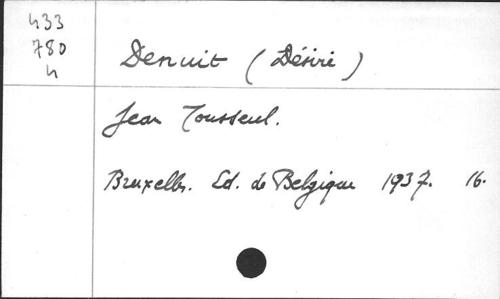 433
780
h
Denuit (Désiré)
Jean Tousseul.
Bruxelles. Ed. de Belgique 1937. 16.